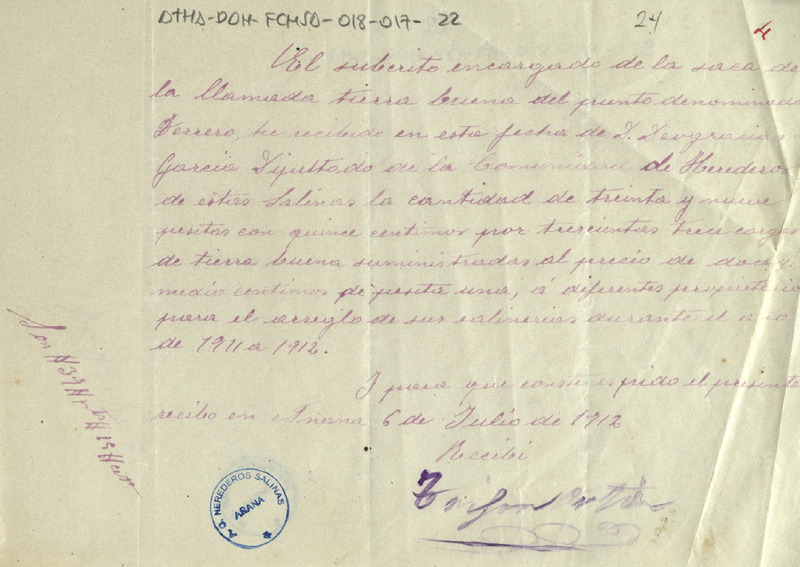 ATHA-DOH-FCMSA-018-017-22
24
4
El subcrito encargado de la saca de
la llamada tierra buena del punto denominado
Terrero, he recibido en esta fecha de D. Deogracias
Garcia Diputado de la Comunidad de Herederos
de estas Salinas la cantidad de treinta y nueve
pesetas con quince centimos por trescientas trece cargas
de tierra buena suministradas al precio de doce y
medio centimos de peseta una, á diferentes propietarios
para el arreglo de sus salinerias durante el año
de 1911 a 1912.
Y para que conste espido el presente
recibo en Añana 6 de Julio de 1912
Recibi
Son # 39 # pts # 15 # cts
HEREDEROS SALINAS
AÑANA